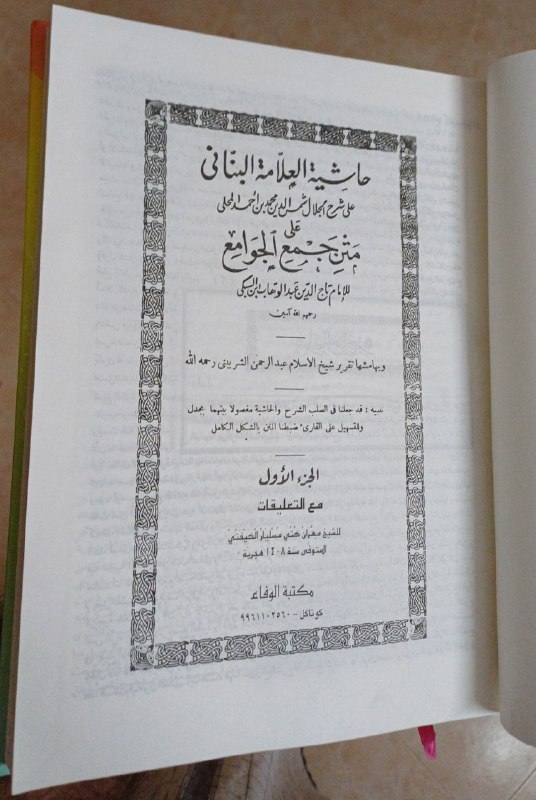 حاشية العلامة البناني
على شرح الجلال شمس الدين محمد بن أحمد المحلى
على
متن جمع الجوامع
للإمام تاج الدين عبد الوهاب ابن السبكى
رحمهم الله آمين
وبهامشها تقرير شيخ الاسلام عبد الرحمن الشربينى رحمه الله
تنبيه : قد جعلنا فى الصلب الشرح والحاشية مفصولا بينهما بجدول
وللتسهيل على القارئ ضبطنا المتن بالشكل الكامل
الجزء الأول
مع التعليقات
للشيخ مهران كتي مسليار الكيفتي
المتوفى سنة ١٤٠٨ هجرية
مكتبة الوفاء
كوتاكل - ٩٩٦١١٠٢٥٦٠